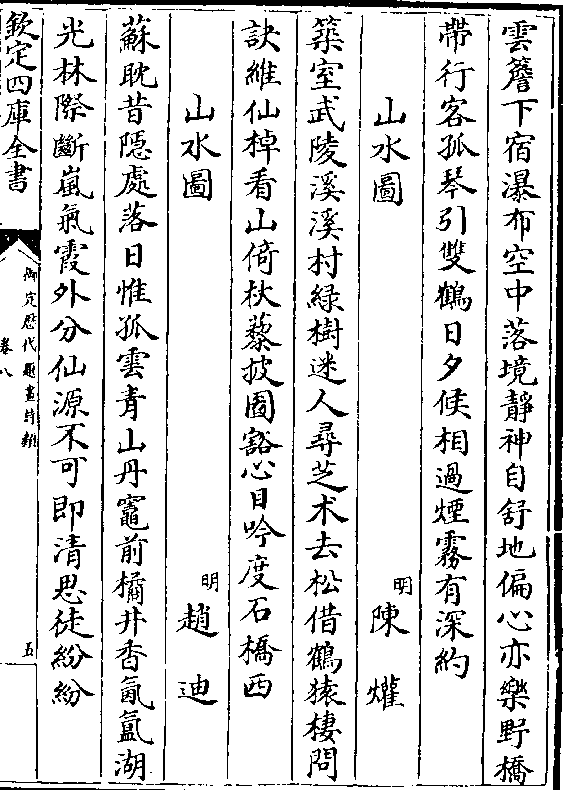 雲簷下宿瀑布空中落境靜神自舒地偏心亦樂野橋
帶行客孤琴引雙鶴日夕候相過煙霧有深約
山水圖
明陳爟
築室武陵溪溪村綠樹迷人尋芝术去松借鶴猿棲問
訣維仙棹看山倚杖藜披圖豁心目吟度石橋西
山水圖
明趙迪
蘇耽昔隱處落日惟孤雲青山丹竈前橘井香氤氳湖
光林際斷嵐氣霞外分仙源不可即清思徒紛紛
欽定四庫全書
御定歷代題畫詩類
卷八
五